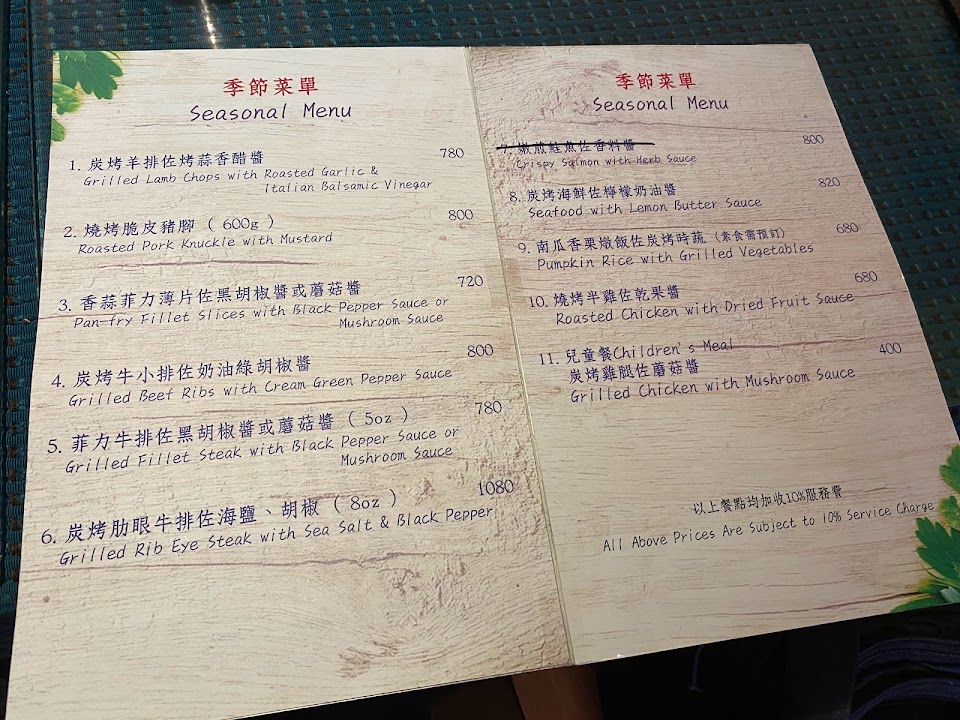 季節菜單
Seasonal Menu
1. 炭烤羊排佐烤蒜香醋醬 780
Grilled Lamb Chops with Roasted Garlic &
Italian Balsamic Vinegar
2. 燒烤脆皮豬腳 ( 600g ) 800
Roasted Pork Knuckle with Mustard
3. 香蒜菲力薄片佐黑胡椒醬或蘑菇醬 720
Pan-fry Fillet Slices with Black Pepper Sauce or
Mushroom Sauce
4. 炭烤牛小排佐奶油綠胡椒醬 800
Grilled Beef Ribs with Cream Green Pepper Sauce
5. 菲力牛排佐黑胡椒醬或蘑菇醬 ( 5oz ) 780
Grilled Fillet Steak with Black Pepper Sauce or
Mushroom Sauce
6. 炭烤肋眼牛排佐海鹽、胡椒 ( 8oz ) 1080
Grilled Rib Eye Steak with Sea Salt & Black Pepper
季節菜單
Seasonal Menu
7. 嫩煎鮭魚佐香料醬 800
Crispy Salmon with Herb Sauce
8. 炭烤海鮮佐檸檬奶油醬 820
Seafood with Lemon Butter Sauce
9. 南瓜香栗燉飯佐炭烤時蔬 (素食需預訂) 680
Pumpkin Rice with Grilled Vegetables
10. 燒烤半雞佐乾果醬 680
Roasted Chicken with Dried Fruit Sauce
11. 兒童餐Children's Meal 400
炭烤雞腿佐蘑菇醬
Grilled Chicken with Mushroom Sauce
以上餐點均加收10%服務費
All Above Prices Are Subject to 10% Service Charge